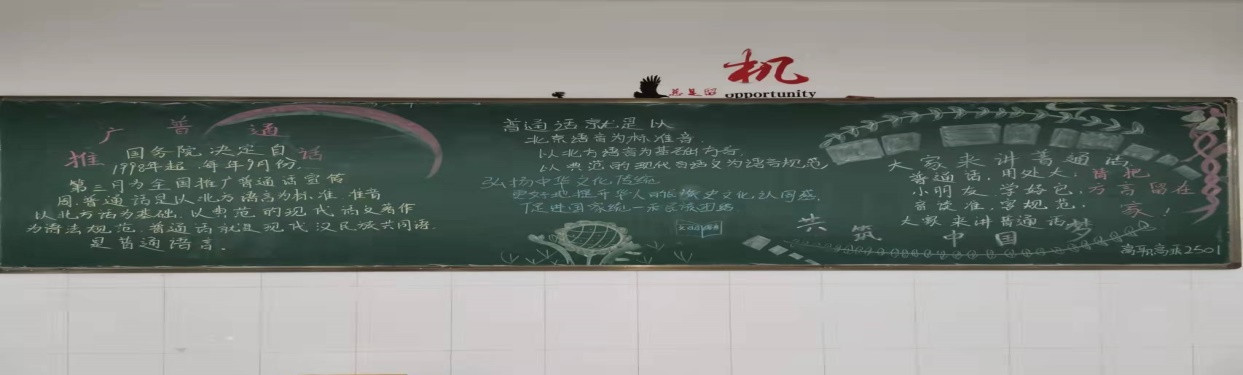 机
opportunity
推广普通话
国务院,决定自
1998年起 每年9月份,
第三月为全国推广普通话宣传
周,普通话是以北方语音为标准,准音
以北方话为基础,以典范的现代话文著作
为语法规范,普通话就是现代汉民族共同语,
是普通语言。
普通话就是以
北京语音为标准音
以北方语音为基础的方言
以典范的现代白话文为语言规范
弘扬中华文化传统
历史文化认同感,
促进国家统一
大家来讲普通话
普通话,用处大,请把
小朋友学好它,方言留在
音读准,字规范,家!
大家来讲普通话
共筑中国梦
2501